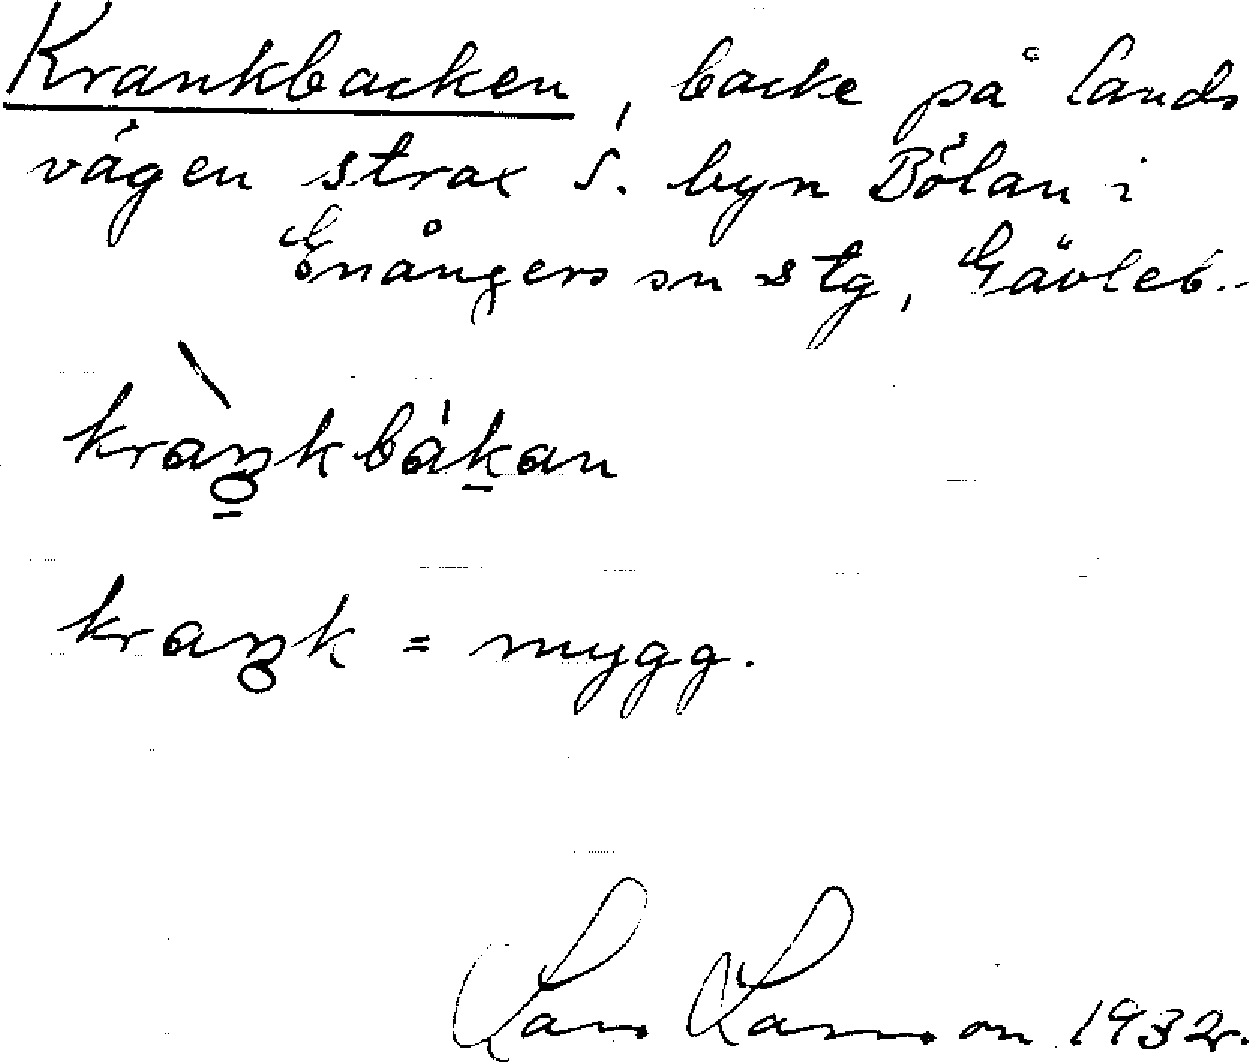 Krankbacken, backe på lands
vägen strax S. byn Bölan i
Enångers sn stg, Gävleb.
kràŋkbákan
kraŋk = mygg.
Lars Larsson 1932.